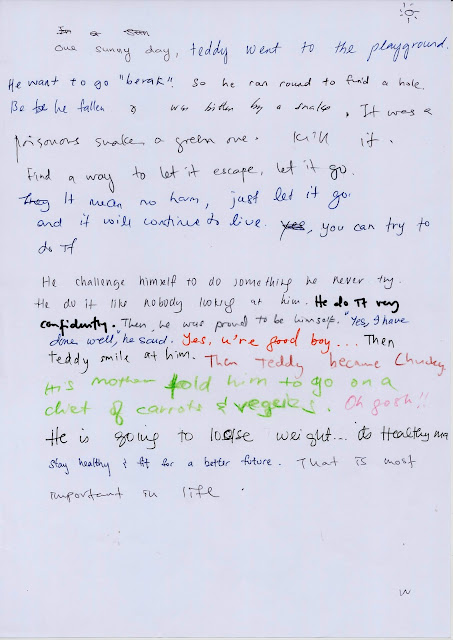 In a sun
One sunny day, teddy went to the playground.
He want to go "berak". So he ran round to find a hole.
Be he fallen & was bitten by a snake. It was a
poisonous snake, a green one. Kill it.
Find a way to let it escape, let it go.
It mean no harm, just let it go.
and it will continue to live. yes, you can try to
do it
He challenge himself to do something he never try.
He do it like nobody looking at him. He do it very
confidently. Then, he was proud to be himself. "Yes, I have
done well," he said. Yes, u're good boy.... Then
teddy smile at him. Then Teddy became Chunky
His mother told him to go on a
diet of carrots & vegeies. Oh gosh!!
He is going to loose weight... Healthy
Stay healthy & fit for a better future. That is most
important in life.